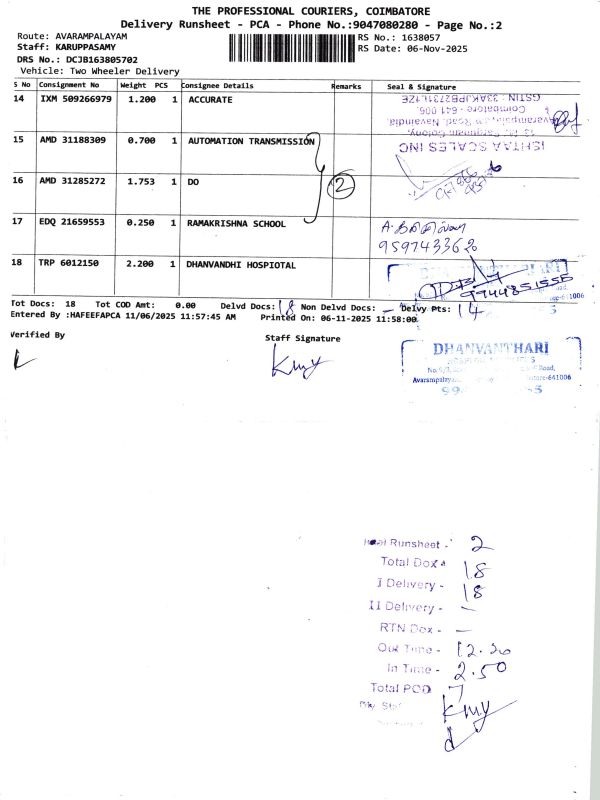 THE PROFESSIONAL COURIERS, COIMBATORE
Delivery Runsheet - PCA - Phone No.:9047080280 - Page No.:2
Route: AVARAMPALAYAM
RS No.: 1638057
Staff: KARUPPASAMY
RS Date: 06-Nov-2025
DRS No.: DCJB163805702
Vehicle: Two Wheeler Delivery
S No Consignment No Weight PCS Consignee Details Remarks Seal & Signature
14 IXM 509266979 1.200 1 ACCURATE
ISHTAA SCALES INC
Coimbatore - 641 006.
15 AMD 31188309 0.700 1 AUTOMATION TRANSMISSION
16 AMD 31285272 1.753 1 DO 2
17 EDQ 21659553 0.250 1 RAMAKRISHNA SCHOOL
18 TRP 6012150 2.200 1 DHANVANDHI HOSPIOTAL
9944851555
Tot Docs: 18 Tot COD Amt: 0.00 Delvd Docs: 18 Non Delvd Docs: - Delvy Pts: 14
Entered By :HAFEEFAPCA 11/06/2025 11:57:45 AM Printed On: 06-11-2025 11:58:00
Verified By
Staff Signature
DHANVANTHARI
Avarampalay
641006
Runsheet - 2
Total Dox 18
I Delivery - 18
II Delivery - -
RTN Dox - -
Out Time - 12.20
In Time - 2.50
Total POD 7